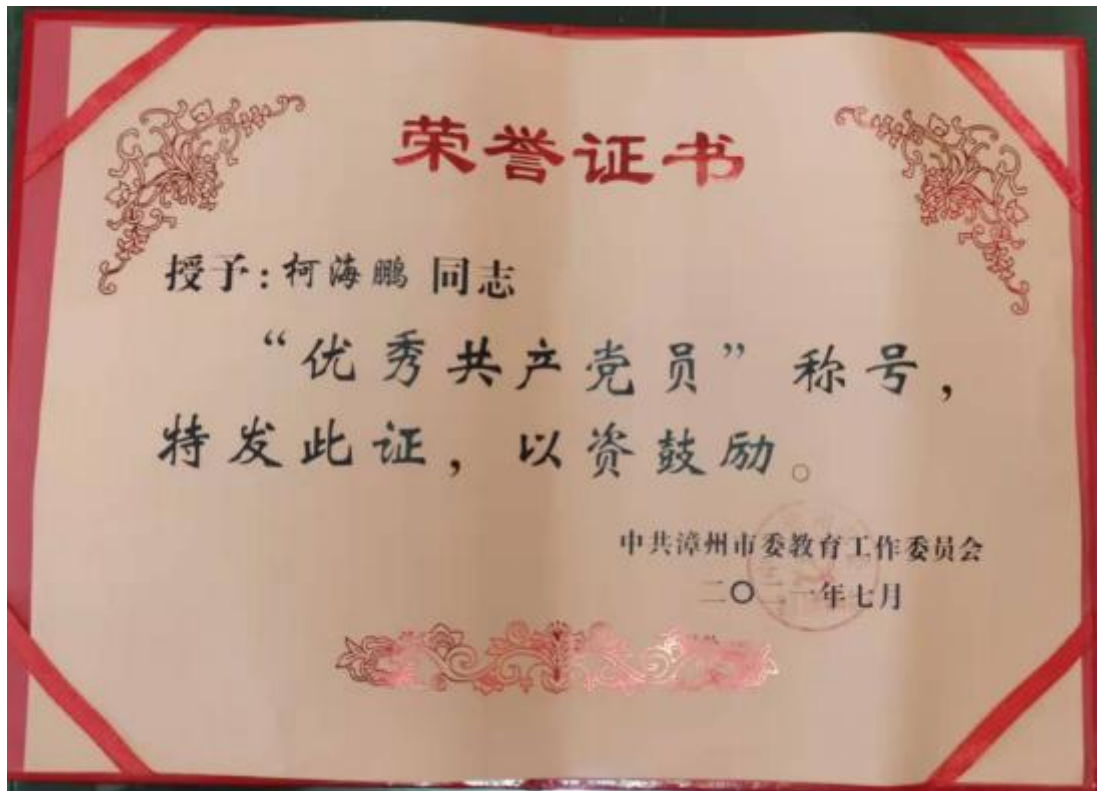 荣誉证书
授予:柯海鹏 同志
“优秀共产党员”称号,
特发此证,以资鼓励。
中共漳州市委教育工作委员会
二〇二一年七月